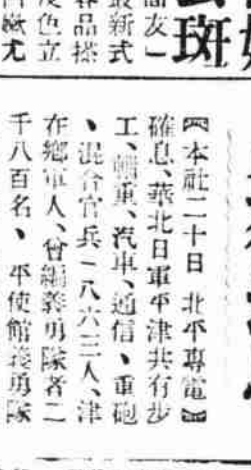 斑
友」
最新式
容品搽
色立
尤
【本社二十日北平專電】
確息、華北日軍平津共有步
工、輜重、汽車、通信、重砲
、混合官兵一八六三人、津
在鄉軍人、曾編義勇隊者二
千八百名、平使館義勇隊